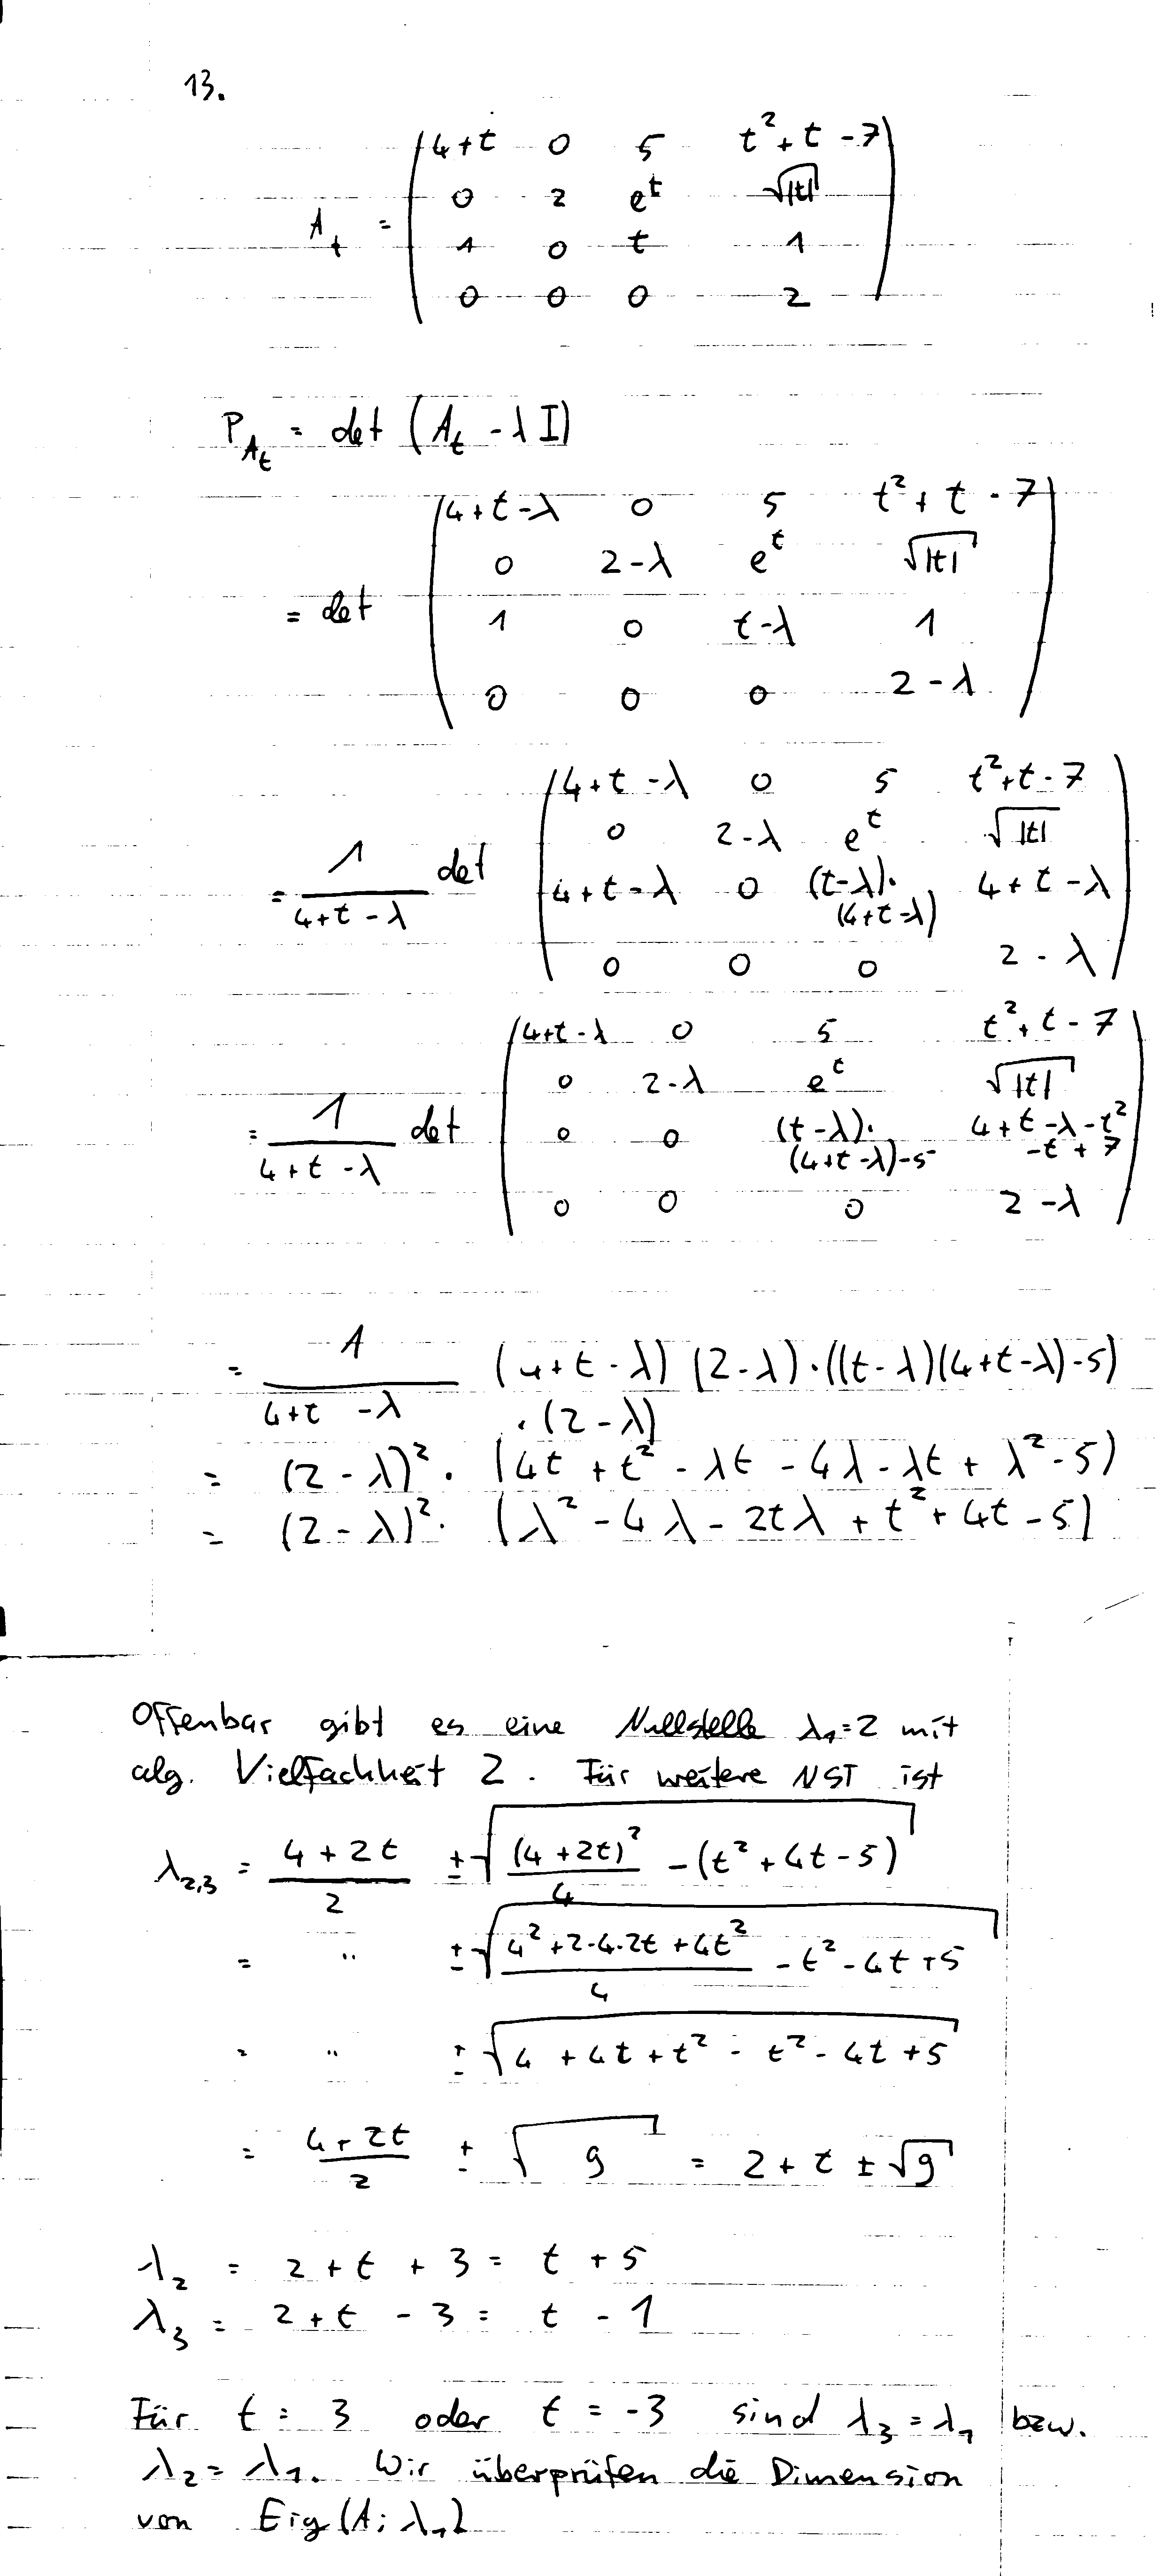 13.
A_t = \begin{pmatrix} 4+t & 0 & 5 & t^2+t-7 \\ 0 & 2 & e^t & \sqrt{|t|} \\ 1 & 0 & t & 1 \\ 0 & 0 & 0 & 2 \end{pmatrix}
P_{A_t} = det (A_t - λI)
= det \begin{pmatrix} 4+t-λ & 0 & 5 & t^2+t-7 \\ 0 & 2-λ & e^t & \sqrt{|t|} \\ 1 & 0 & t-λ & 1 \\ 0 & 0 & 0 & 2-λ \end{pmatrix}
= \frac{1}{4+t-λ} det \begin{pmatrix} 4+t-λ & 0 & 5 & t^2+t-7 \\ 0 & 2-λ & e^t & \sqrt{|t|} \\ 4+t-λ & 0 & (t-λ)·(4+t-λ) & 4+t-λ \\ 0 & 0 & 0 & 2-λ \end{pmatrix}
= \frac{1}{4+t-λ} det \begin{pmatrix} 4+t-λ & 0 & 5 & t^2+t-7 \\ 0 & 2-λ & e^t & \sqrt{|t|} \\ 0 & 0 & (t-λ)·(4+t-λ)-5 & 4+t-λ-t^2-t+7 \\ 0 & 0 & 0 & 2-λ \end{pmatrix}
= \frac{1}{4+t-λ} (4+t-λ) (2-λ)·((t-λ)(4+t-λ)-5)
·(2-λ)
= (2-λ)^2 · (4t + t^2 - λt - 4λ - λt + λ^2 - 5)
= (2-λ)^2 · (λ^2 - 4λ - 2tλ + t^2 + 4t - 5)
Offenbar gibt es eine Nullstelle λ_1=2 mit
alg. Vielfachheit 2. Für weitere NST ist
λ_{2,3} = \frac{4+2t}{2} ± \sqrt{\frac{(4+2t)^2}{4} - (t^2+4t-5)}
= " ± \sqrt{\frac{4^2+2·4·2t+4t^2}{4} - t^2-4t+5}
= " ± \sqrt{4+4t+t^2-t^2-4t+5}
= \frac{4+2t}{2} ± \sqrt{9} = 2+t ± \sqrt{9}
λ_2 = 2+t+3 = t+5
λ_3 = 2+t-3 = t-1
Für t = 3 oder t = -3 sind λ_3=λ_1 bzw.
λ_2=λ_1. Wir überprüfen die Dimension
von Eig(A; λ_1)